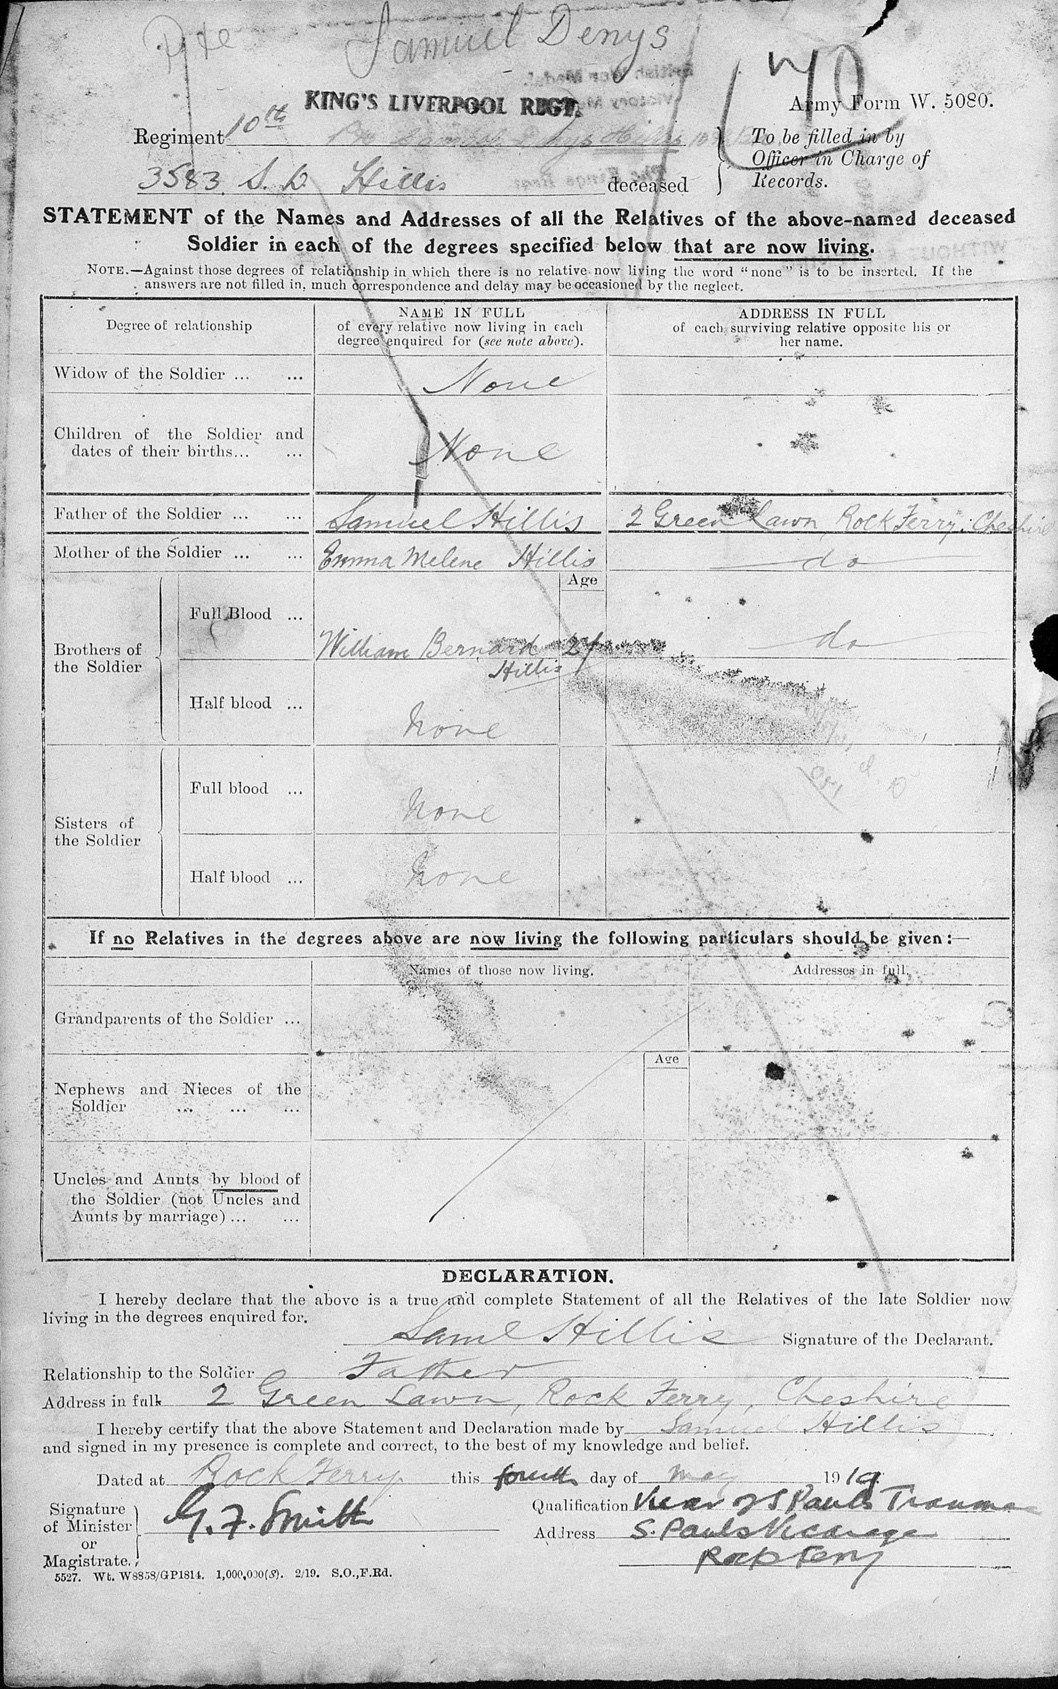 Pte Samuel Denys
KING'S LIVERPOOL REGT.
Army Form W. 5080.
Regiment 10th
To be filled in by
Officer in Charge of
Records.
3583 S. D. Hillis deceased
STATEMENT of the Names and Addresses of all the Relatives of the above-named deceased
Soldier in each of the degrees specified below that are now living.
NOTE.—Against those degrees of relationship in which there is no relative now living the word "none" is to be inserted. If the
answers are not filled in, much correspondence and delay may be occasioned by the neglect.
Degree of relationship
NAME IN FULL
of every relative now living in each
degree enquired for (see note above).
ADDRESS IN FULL
of each surviving relative opposite his or
her name.
Widow of the Soldier ... ... None
Children of the Soldier and
dates of their births... ... None
Father of the Soldier ... ... Samuel Hillis 2 Green Lawn, Rock Ferry, Cheshire
Mother of the Soldier ... ... Emma Melene Hillis do
Age
Brothers of
the Soldier
Full Blood ... William Bernard Hillis 27 do
Half blood ... None
Sisters of
the Soldier
Full blood ... None
Half blood ... None
If no Relatives in the degrees above are now living the following particulars should be given:—
Names of those now living. Addresses in full.
Grandparents of the Soldier ...
Age
Nephews and Nieces of the
Soldier ... ... ...
Uncles and Aunts by blood of
the Soldier (not Uncles and
Aunts by marriage) ... ...
DECLARATION.
I hereby declare that the above is a true and complete Statement of all the Relatives of the late Soldier now
living in the degrees enquired for.
Saml Hillis Signature of the Declarant.
Relationship to the Soldier Father
Address in full 2 Green Lawn, Rock Ferry, Cheshire
I hereby certify that the above Statement and Declaration made by Samuel Hillis
and signed in my presence is complete and correct, to the best of my knowledge and belief.
Dated at Rock Ferry this fourth day of May 1919.
Signature
of Minister
or
Magistrate.
G. F. Smith
Qualification Vicar of S Pauls Tranmere
Address S. Pauls Vicarage
Rock Ferry
5527. Wt. W8858/GP1814. 1,000,000(S). 2/19. S.O.,F.Rd.